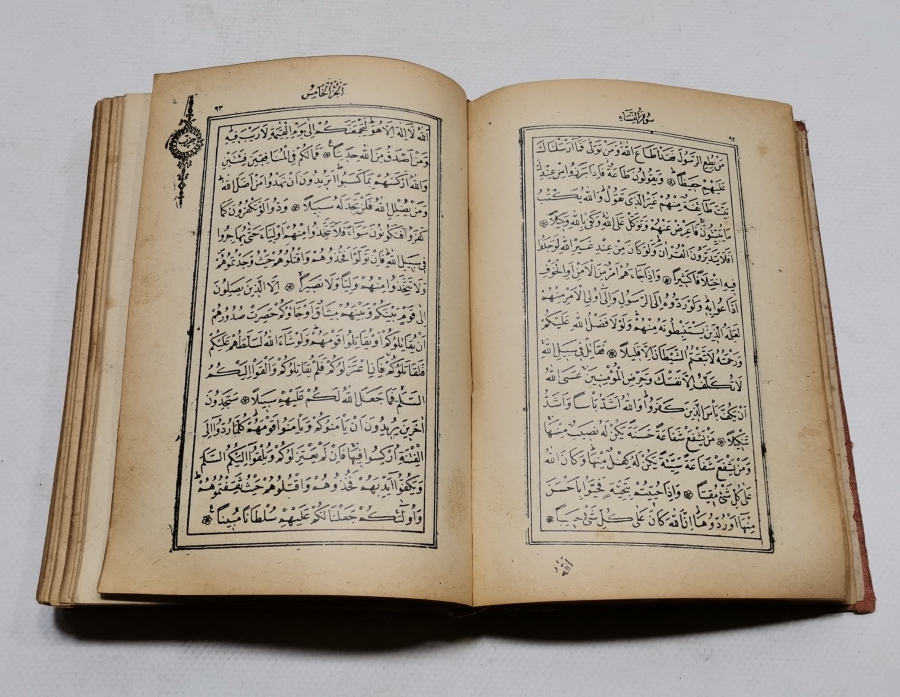 سورة النساء
٩٢
مَنْ يُطِعِ الرَّسُولَ فَقَدْ اَطَاعَ اللّٰهَ وَمَنْ تَوَلّٰى فَمَا اَرْسَلْنَاكَ
عَلَيْهِمْ حَفِيظًا ۞ وَيَقُولُونَ طَاعَةٌ فَاِذَا بَرَزُوا مِنْ عِنْدِكَ
بَيَّتَ طَائِفَةٌ مِنْهُمْ غَيْرَ الَّذِى تَقُولُ وَاللّٰهُ يَكْتُبُ
مَا يُبَيِّتُونَ فَاَعْرِضْ عَنْهُمْ وَتَوَكَّلْ عَلَى اللّٰهِ وَكَفٰى بِاللّٰهِ وَكِيلًا ۞
اَفَلَا يَتَدَبَّرُونَ الْقُرْاٰنَ وَلَوْ كَانَ مِنْ عِنْدِ غَيْرِ اللّٰهِ لَوَجَدُوا
فِيهِ اخْتِلَافًا كَثِيرًا ۞ وَاِذَا جَاءَهُمْ اَمْرٌ مِنَ الْاَمْنِ اَوِ الْخَوْفِ
اَذَاعُوا بِهِ وَلَوْ رَدُّوهُ اِلَى الرَّسُولِ وَاِلٰى اُولِى الْاَمْرِ مِنْهُمْ
لَعَلِمَهُ الَّذِينَ يَسْتَنْبِطُونَهُ مِنْهُمْ وَلَوْلَا فَضْلُ اللّٰهِ عَلَيْكُمْ
وَرَحْمَتُهُ لَاتَّبَعْتُمُ الشَّيْطَانَ اِلَّا قَلِيلًا ۞ فَقَاتِلْ فِى سَبِيلِ اللّٰهِ
لَا تُكَلَّفُ اِلَّا نَفْسَكَ وَحَرِّضِ الْمُؤْمِنِينَ عَسَى اللّٰهُ
اَنْ يَكُفَّ بَأْسَ الَّذِينَ كَفَرُوا وَاللّٰهُ اَشَدُّ بَأْسًا وَاَشَدُّ
تَنْكِيلًا ۞ مَنْ يَشْفَعْ شَفَاعَةً حَسَنَةً يَكُنْ لَهُ نَصِيبٌ مِنْهَا
وَمَنْ يَشْفَعْ شَفَاعَةً سَيِّئَةً يَكُنْ لَهُ كِفْلٌ مِنْهَا وَكَانَ اللّٰهُ
عَلٰى كُلِّ شَىْءٍ مُقِيتًا ۞ وَاِذَا حُيِّيتُمْ بِتَحِيَّةٍ فَحَيُّوا بِاَحْسَنَ
مِنْهَا اَوْ رُدُّوهَا اِنَّ اللّٰهَ كَانَ عَلٰى كُلِّ شَىْءٍ حَسِيبًا ۞
الجزء الخامس
٩٣
حزب
اَللّٰهُ لَا اِلٰهَ اِلَّا هُوَ لَيَجْمَعَنَّكُمْ اِلٰى يَوْمِ الْقِيٰمَةِ لَا رَيْبَ فِيهِ
وَمَنْ اَصْدَقُ مِنَ اللّٰهِ حَدِيثًا ۞ فَمَا لَكُمْ فِى الْمُنَافِقِينَ فِئَتَيْنِ
وَاللّٰهُ اَرْكَسَهُمْ بِمَا كَسَبُوا اَتُرِيدُونَ اَنْ تَهْدُوا مَنْ اَضَلَّ اللّٰهُ
وَمَنْ يُضْلِلِ اللّٰهُ فَلَنْ تَجِدَ لَهُ سَبِيلًا ۞ وَدُّوا لَوْ تَكْفُرُونَ كَمَا
كَفَرُوا فَتَكُونُونَ سَوَاءً فَلَا تَتَّخِذُوا مِنْهُمْ اَوْلِيَاءَ حَتّٰى يُهَاجِرُوا
فِى سَبِيلِ اللّٰهِ فَاِنْ تَوَلَّوْا فَخُذُوهُمْ وَاقْتُلُوهُمْ حَيْثُ وَجَدْتُمُوهُمْ
وَلَا تَتَّخِذُوا مِنْهُمْ وَلِيًّا وَلَا نَصِيرًا ۞ اِلَّا الَّذِينَ يَصِلُونَ
اِلٰى قَوْمٍ بَيْنَكُمْ وَبَيْنَهُمْ مِيثَاقٌ اَوْ جَاؤُكُمْ حَصِرَتْ صُدُورُهُمْ
اَنْ يُقَاتِلُوكُمْ اَوْ يُقَاتِلُوا قَوْمَهُمْ وَلَوْ شَاءَ اللّٰهُ لَسَلَّطَهُمْ عَلَيْكُمْ
فَلَقَاتَلُوكُمْ فَاِنِ اعْتَزَلُوكُمْ فَلَمْ يُقَاتِلُوكُمْ وَاَلْقَوْا اِلَيْكُمُ
السَّلَمَ فَمَا جَعَلَ اللّٰهُ لَكُمْ عَلَيْهِمْ سَبِيلًا ۞ سَتَجِدُونَ
اٰخَرِينَ يُرِيدُونَ اَنْ يَأْمَنُوكُمْ وَيَأْمَنُوا قَوْمَهُمْ كُلَّمَا رُدُّوا اِلَى
الْفِتْنَةِ اُرْكِسُوا فِيهَا فَاِنْ لَمْ يَعْتَزِلُوكُمْ وَيُلْقُوا اِلَيْكُمُ السَّلَمَ
وَيَكُفُّوا اَيْدِيَهُمْ فَخُذُوهُمْ وَاقْتُلُوهُمْ حَيْثُ ثَقِفْتُمُوهُمْ
وَاُولٰئِكُمْ جَعَلْنَا لَكُمْ عَلَيْهِمْ سُلْطَانًا مُبِينًا ۞